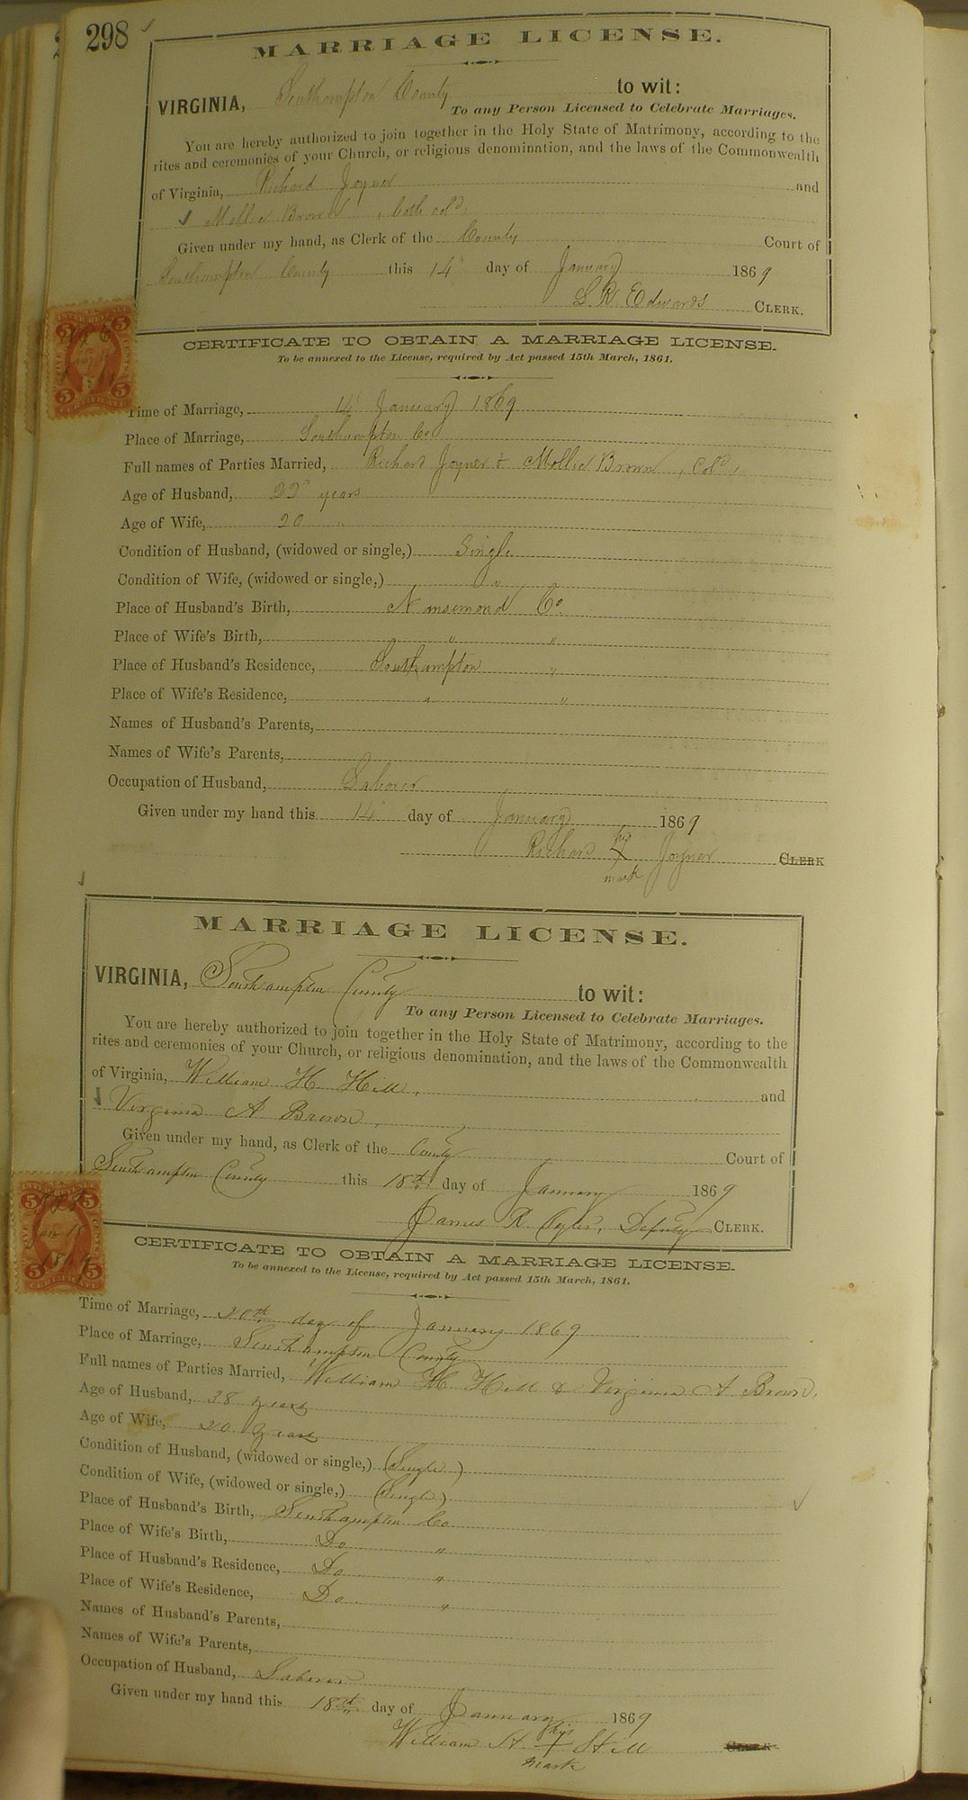 298
MARRIAGE LICENSE.
VIRGINIA, Southampton County to wit:
To any Person Licensed to Celebrate Marriages.
You are hereby authorized to join together in the Holy State of Matrimony, according to the
rites and ceremonies of your Church, or religious denomination, and the laws of the Commonwealth
of Virginia, Richard Joyner and
Mollie Brown, both col'd.
Given under my hand, as Clerk of the County Court of
Southampton County this 14th day of January 1869
L. R. Edwards CLERK.
CERTIFICATE TO OBTAIN A MARRIAGE LICENSE.
To be annexed to the License, required by Act passed 15th March, 1861.
Time of Marriage, 14 January 1869
Place of Marriage, Southampton Co
Full names of Parties Married, Richard Joyner & Mollie Brown, Col'd
Age of Husband, years
Age of Wife, 20 "
Condition of Husband, (widowed or single,) Single
Condition of Wife, (widowed or single,) "
Place of Husband's Birth, Nansemond Co
Place of Wife's Birth, " "
Place of Husband's Residence, Southampton "
Place of Wife's Residence, " "
Names of Husband's Parents,
Names of Wife's Parents,
Occupation of Husband, Laborer
Given under my hand this 14 day of January 1869
Richard his Joyner CLERK
mark
MARRIAGE LICENSE.
VIRGINIA, Southampton County to wit:
To any Person Licensed to Celebrate Marriages.
You are hereby authorized to join together in the Holy State of Matrimony, according to the
rites and ceremonies of your Church, or religious denomination, and the laws of the Commonwealth
of Virginia, William H Hill, and
Virginia A Brown,
Given under my hand, as Clerk of the County Court of
Southampton County this 18th day of January 1869
James R. Deputy CLERK.
CERTIFICATE TO OBTAIN A MARRIAGE LICENSE.
To be annexed to the License, required by Act passed 15th March, 1861.
Time of Marriage, 20th day of January 1869
Place of Marriage, Southampton County
Full names of Parties Married, William H Hill & Virginia A Brown.
Age of Husband, 38 years
Age of Wife, 20 years
Condition of Husband, (widowed or single,) (Single)
Condition of Wife, (widowed or single,) (Single)
Place of Husband's Birth, Southampton Co
Place of Wife's Birth, Do "
Place of Husband's Residence, Do "
Place of Wife's Residence, Do "
Names of Husband's Parents,
Names of Wife's Parents,
Occupation of Husband, Laborer
Given under my hand this 18th day of January 1869
William H. his Hill CLERK
mark